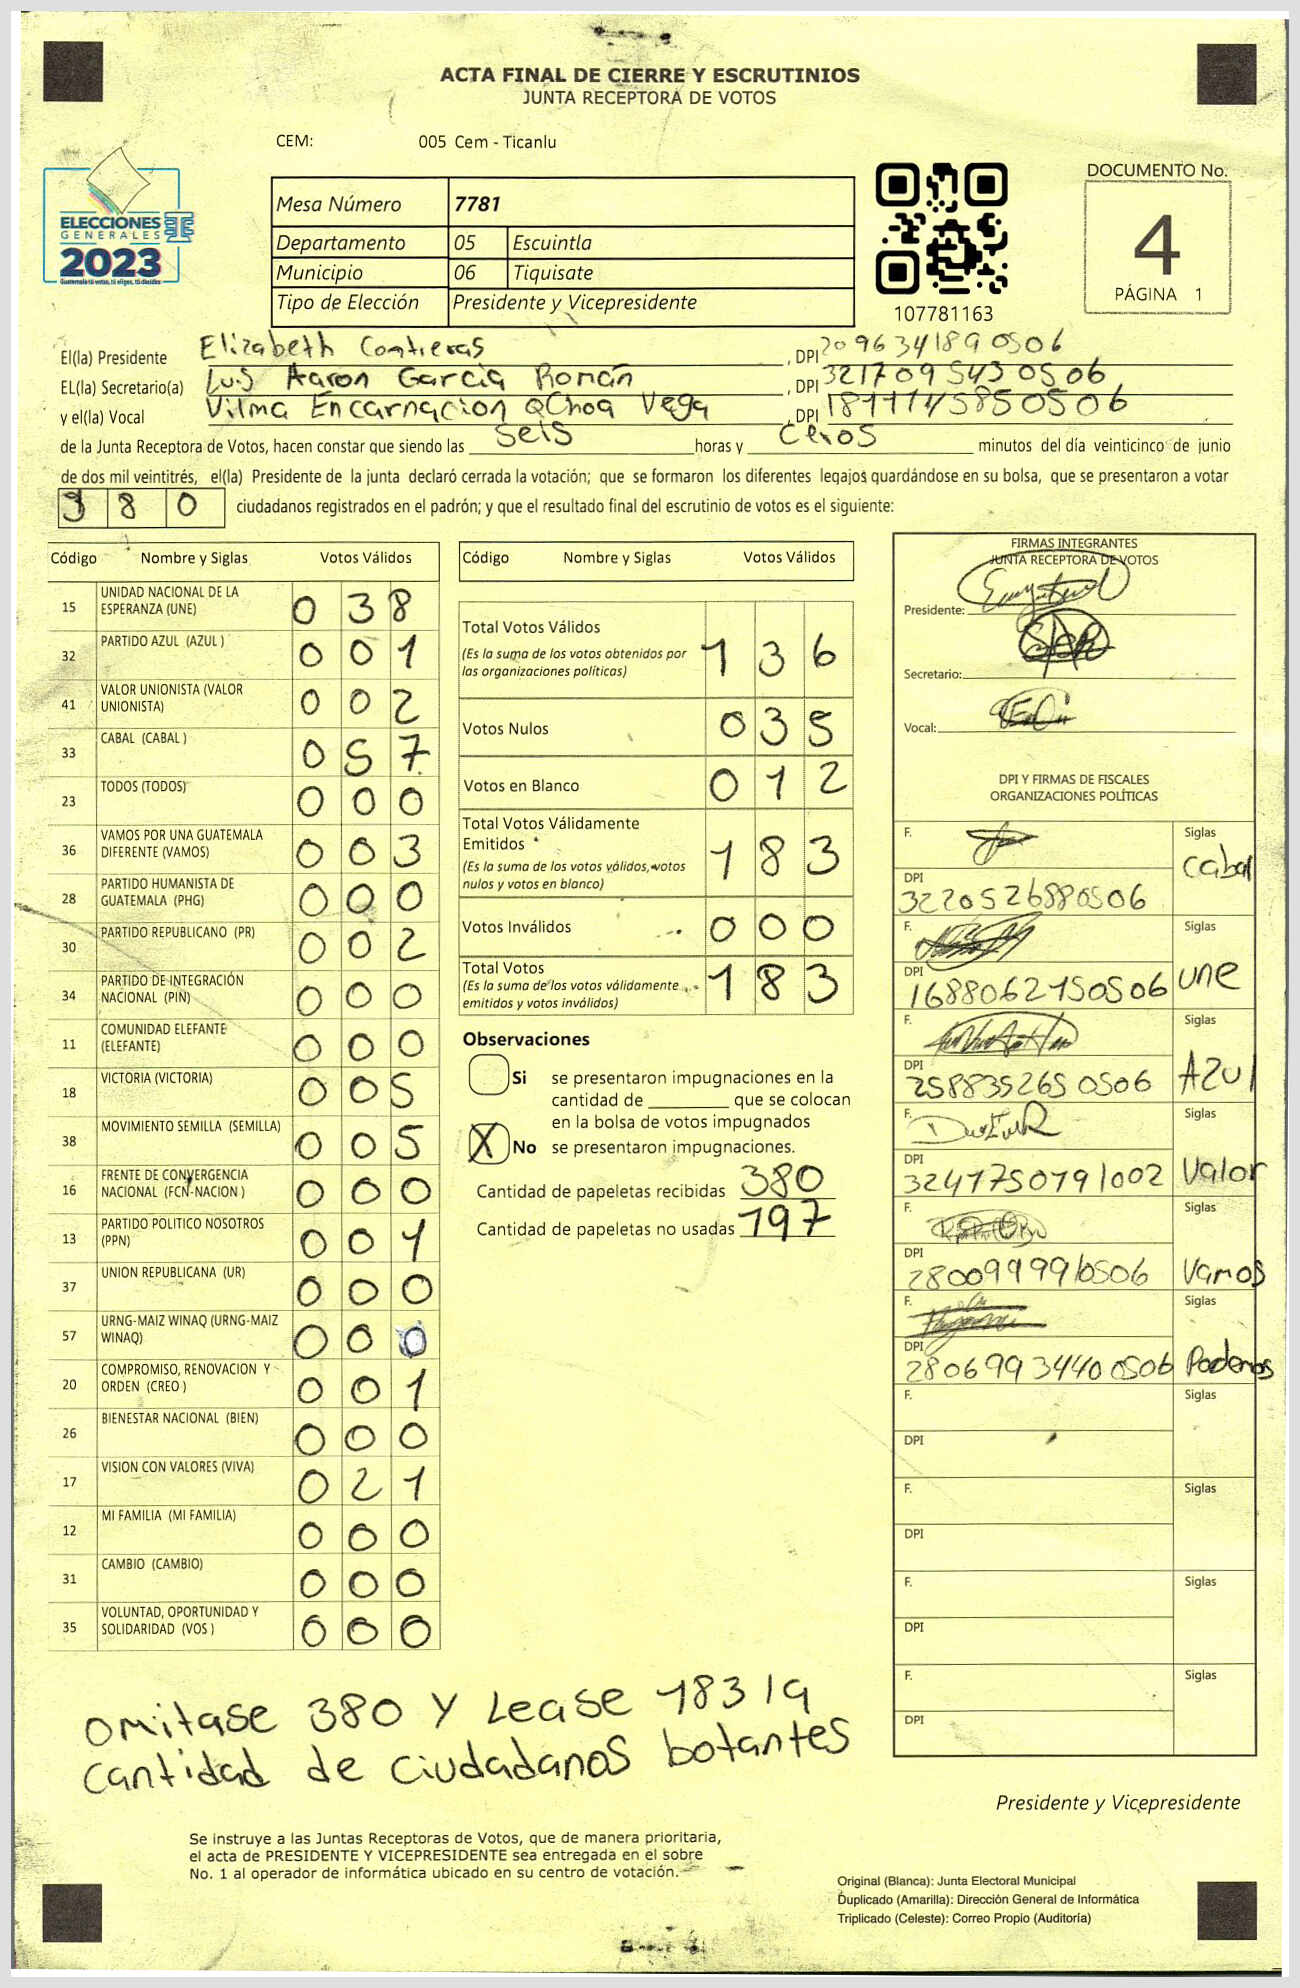 ACTA FINAL DE CIERRE Y ESCRUTINIOS
JUNTA RECEPTORA DE VOTOS
CEM: 005 Cem - Ticanlu
ELECCIONES
GENERALES
2023
Guatemala tú votas, tú eliges, tú decides
Mesa Número 7781
Departamento 05 Escuintla
Municipio 06 Tiquisate
Tipo de Elección Presidente y Vicepresidente
107781163
DOCUMENTO No.
4
PÁGINA 1
El(la) Presidente Elizabeth Contreras, DPI 2096341890506
EL(la) Secretario(a) Luis Aaron Garcia Román, DPI 3217095430506
y el(la) Vocal Vilma Encarnacion QChoa Vega, DPI
de la Junta Receptora de Votos, hacen constar que siendo las seis horas y Ceros minutos del día veinticinco de junio
de dos mil veintitrés, el(la) Presidente de la junta declaró cerrada la votación; que se formaron los diferentes legajos guardándose en su bolsa, que se presentaron a votar
380 ciudadanos registrados en el padrón; y que el resultado final del escrutinio de votos es el siguiente:
Código Nombre y Siglas Votos Válidos
15 UNIDAD NACIONAL DE LA ESPERANZA (UNE) 038
32 PARTIDO AZUL (AZUL ) 001
41 VALOR UNIONISTA (VALOR UNIONISTA) 002
33 CABAL (CABAL ) 057
23 TODOS (TODOS) 000
36 VAMOS POR UNA GUATEMALA DIFERENTE (VAMOS) 003
28 PARTIDO HUMANISTA DE GUATEMALA (PHG) 000
30 PARTIDO REPUBLICANO (PR) 002
34 PARTIDO DE INTEGRACIÓN NACIONAL (PIN) 000
11 COMUNIDAD ELEFANTE (ELEFANTE) 000
18 VICTORIA (VICTORIA) 005
38 MOVIMIENTO SEMILLA (SEMILLA) 005
16 FRENTE DE CONVERGENCIA NACIONAL (FCN-NACION ) 000
13 PARTIDO POLITICO NOSOTROS (PPN) 001
37 UNION REPUBLICANA (UR) 000
57 URNG-MAIZ WINAQ (URNG-MAIZ WINAQ) 000
20 COMPROMISO, RENOVACION Y ORDEN (CREO ) 001
26 BIENESTAR NACIONAL (BIEN) 000
17 VISION CON VALORES (VIVA) 021
12 MI FAMILIA (MI FAMILIA) 000
31 CAMBIO (CAMBIO) 000
35 VOLUNTAD, OPORTUNIDAD Y SOLIDARIDAD (VOS ) 000
Código Nombre y Siglas Votos Válidos
Total Votos Válidos 136
(Es la suma de los votos obtenidos por
las organizaciones politicas)
Votos Nulos 035
Votos en Blanco 012
Total Votos Válidamente
Emitidos 183
(Es la suma de los votos válidos, votos
nulos y votos en blanco)
Votos Inválidos 000
Total Votos 183
(Es la suma de los votos válidamente
emitidos y votos inválidos)
Observaciones
Si se presentaron impugnaciones en la
cantidad de ________ que se colocan
en la bolsa de votos impugnados
X No se presentaron impugnaciones.
Cantidad de papeletas recibidas 380
Cantidad de papeletas no usadas 197
FIRMAS INTEGRANTES
JUNTA RECEPTORA DE VOTOS
Presidente:
Secretario:
Vocal:
DPI Y FIRMAS DE FISCALES
ORGANIZACIONES POLÍTICAS
F. Siglas cabal
DPI 3220526880506
F. Siglas une
DPI 1688062150506
F. Siglas Azul
DPI 2588352650506
F. Siglas Valor
DPI 3241750791002
F. Siglas Vamos
DPI 2800999910506
F. Siglas Podemos
DPI 28069934400506
F. Siglas
DPI
F. Siglas
DPI
F. Siglas
DPI
F. Siglas
DPI
omitase 380 Y Lease 183 la
cantidad de ciudadanos botantes
Presidente y Vicepresidente
Se instruye a las Juntas Receptoras de Votos, que de manera prioritaria,
el acta de PRESIDENTE Y VICEPRESIDENTE sea entregada en el sobre
No. 1 al operador de informática ubicado en su centro de votación.
Original (Blanca): Junta Electoral Municipal
Duplicado (Amarilla): Dirección General de Informática
Triplicado (Celeste): Correo Propio (Auditoría)